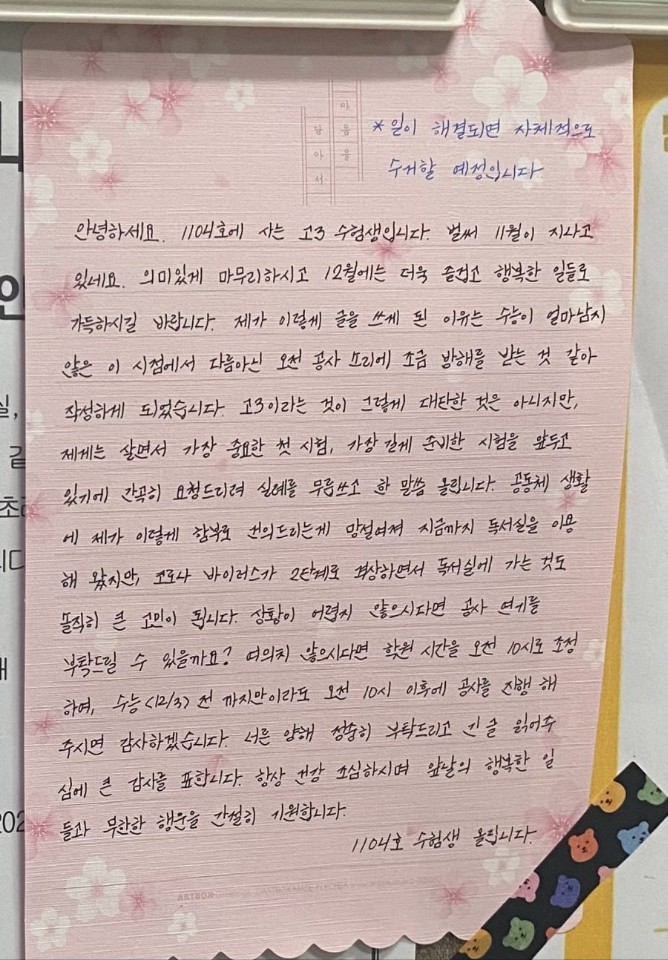 마음을
담아서
*일이 해결되면 자체적으로
수거할 예정입니다
안녕하세요. 1104호에 사는 고3 수험생입니다. 벌써 11월이 지나고
있네요. 의미있게 마무리하시고 12월에는 더욱 즐겁고 행복한 일들로
가득하시길 바랍니다. 제가 이렇게 글을 쓰게 된 이유는 수능이 얼마남지
않은 이 시점에서 다름아닌 오전 공사 소리에 조금 방해를 받는 것 같아
작성하게 되었습니다. 고3이라는 것이 그렇게 대단한 것은 아니지만,
제게는 살면서 가장 중요한 첫 시험, 가장 길게 준비한 시험을 앞두고
있기에 간곡히 요청드리려 실례를 무릅쓰고 한 말씀 올립니다. 공동체 생활
에 제가 이렇게 함부로 건의드리는게 망설여져 지금까지 독서실을 이용
해 왔지만, 코로나 바이러스가 2단계로 격상하면서 독서실에 가는 것도
솔직히 큰 고민이 됩니다. 상황이 어렵지 않으시다면 공사 연기를
부탁드릴 수 있을까요? 여의치 않으시다면 학원 시간을 오전 10시로 조정
하여, 수능<12/3> 전 까지만이라도 오전 10시 이후에 공사를 진행 해
주시면 감사하겠습니다. 너른 양해 정중히 부탁드리고 긴 글 읽어주
심에 큰 감사를 표합니다. 항상 건강 조심하시며 앞날의 행복한 일
들과 무한한 행운을 간절히 기원합니다.
1104호 수험생 올림니다.